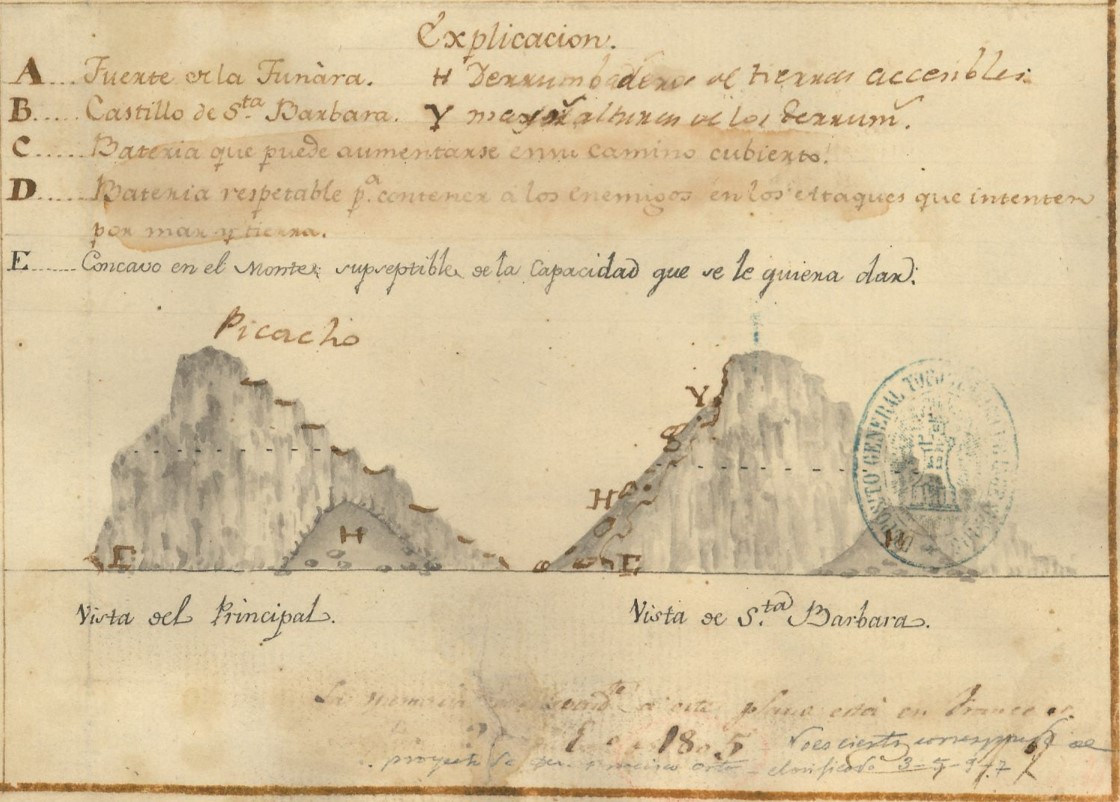 Explicacion.
A.... Fuerte de la Funàra. H Derrumbaderos de tierras accesibles.
B.... Castillo de S.ta Barbara. Y mayor alturas de los derrum.s
C.... Bateria que puede aumentarse en su camino cubierto.
D.... Bateria respetable p.a contener à los enemigos en los ataques que intenten
por mar y tierra.
E.... Concavo en el Monte; supseptible de la Capacidad que se le quiera dar.
Picacho
Y
H
H
E
E
DEPOSITO GENERAL TOPO
Vista del Principal.
Vista de S.ta Barbara.
La memoria a este plano está en
1805 No es cierto, corresponde al
proyecto de clasificado